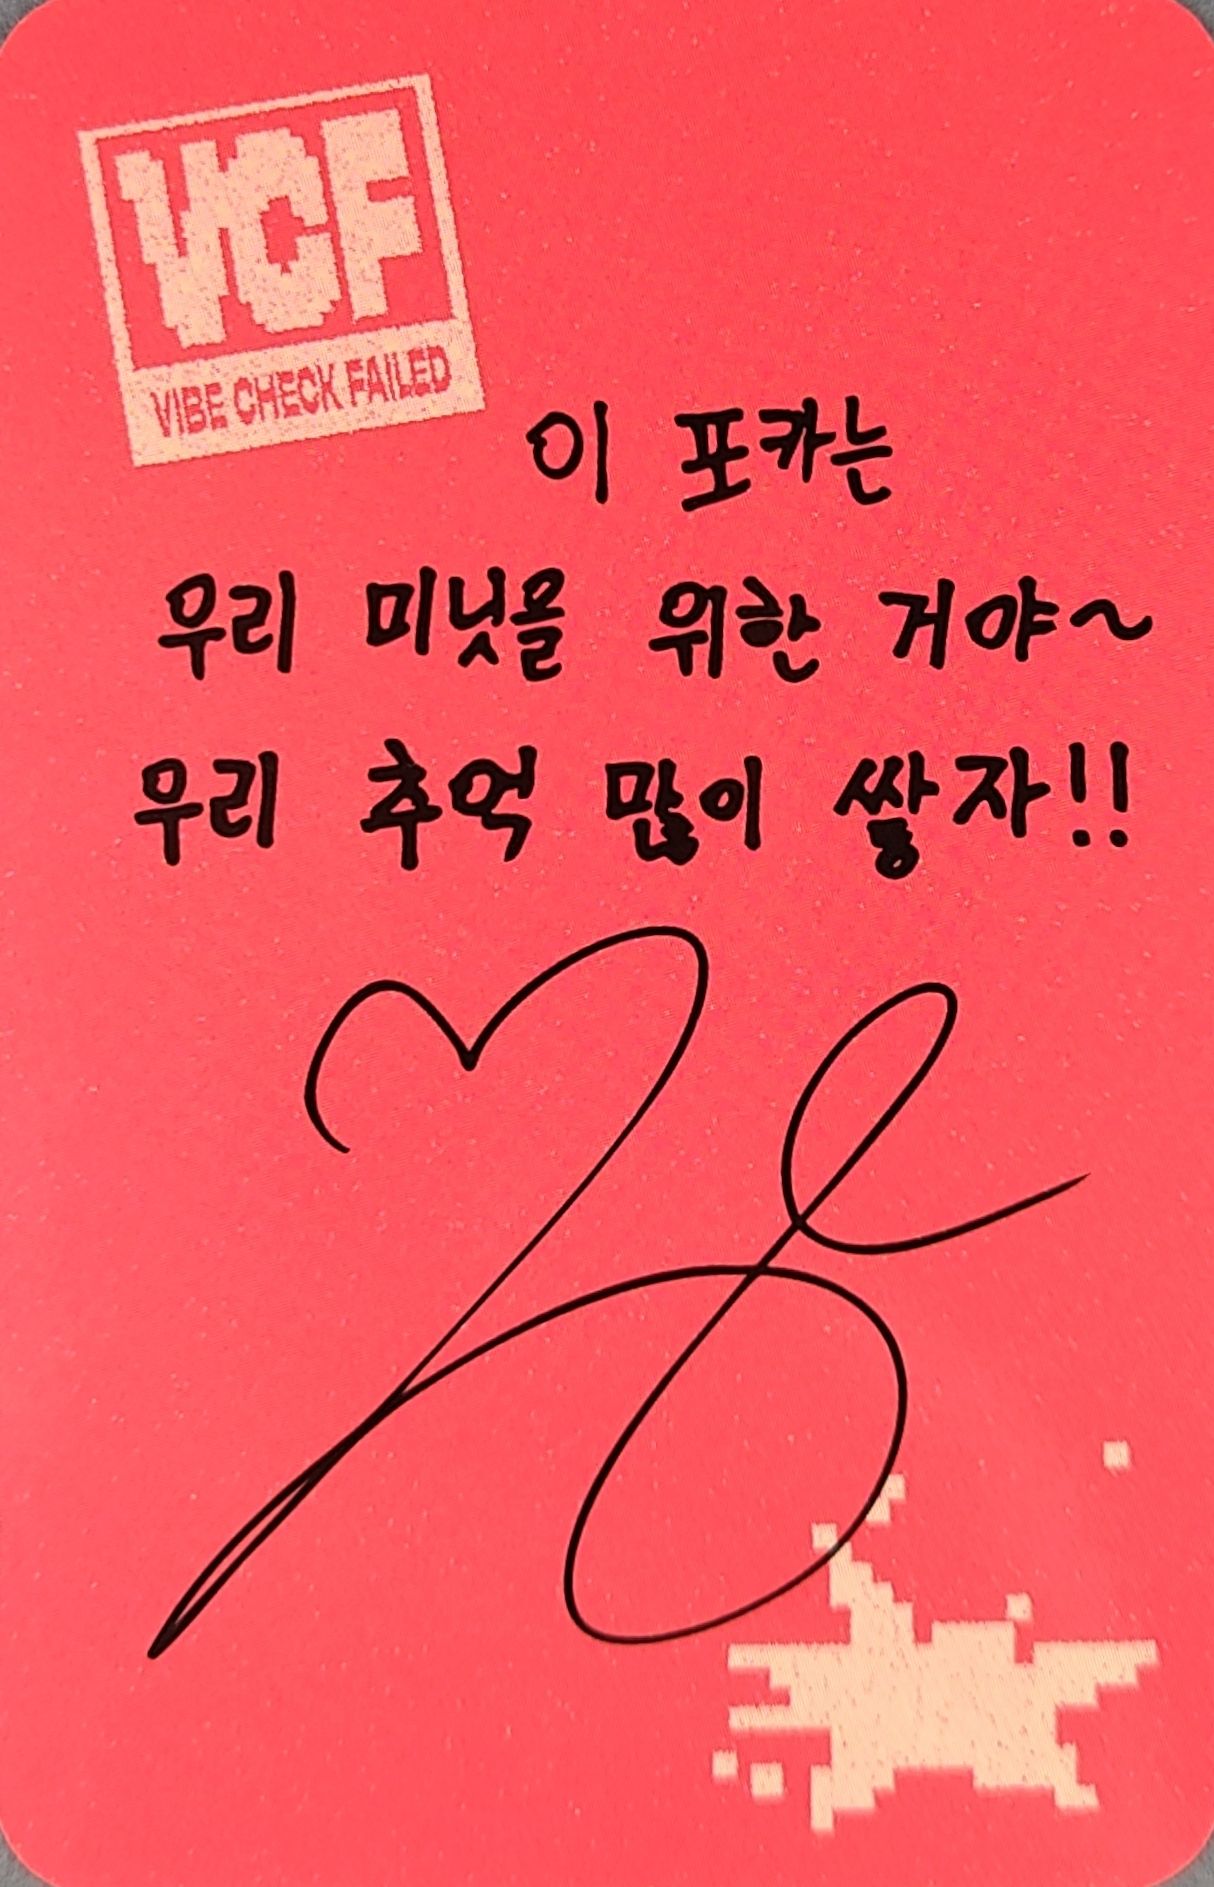 VCF
VIBE CHECK FAILED
이 포카는
우리 미닛을 위한 거야~
우리 추억 많이 쌓자!!